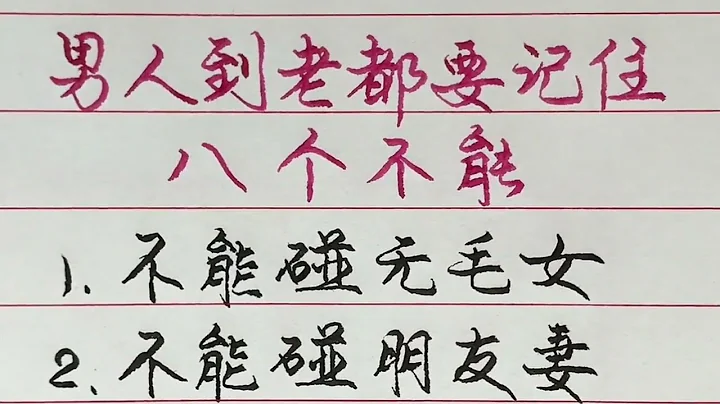 男人到老都要记住
八个不能
1.不能碰无毛女
2.不能碰朋友妻